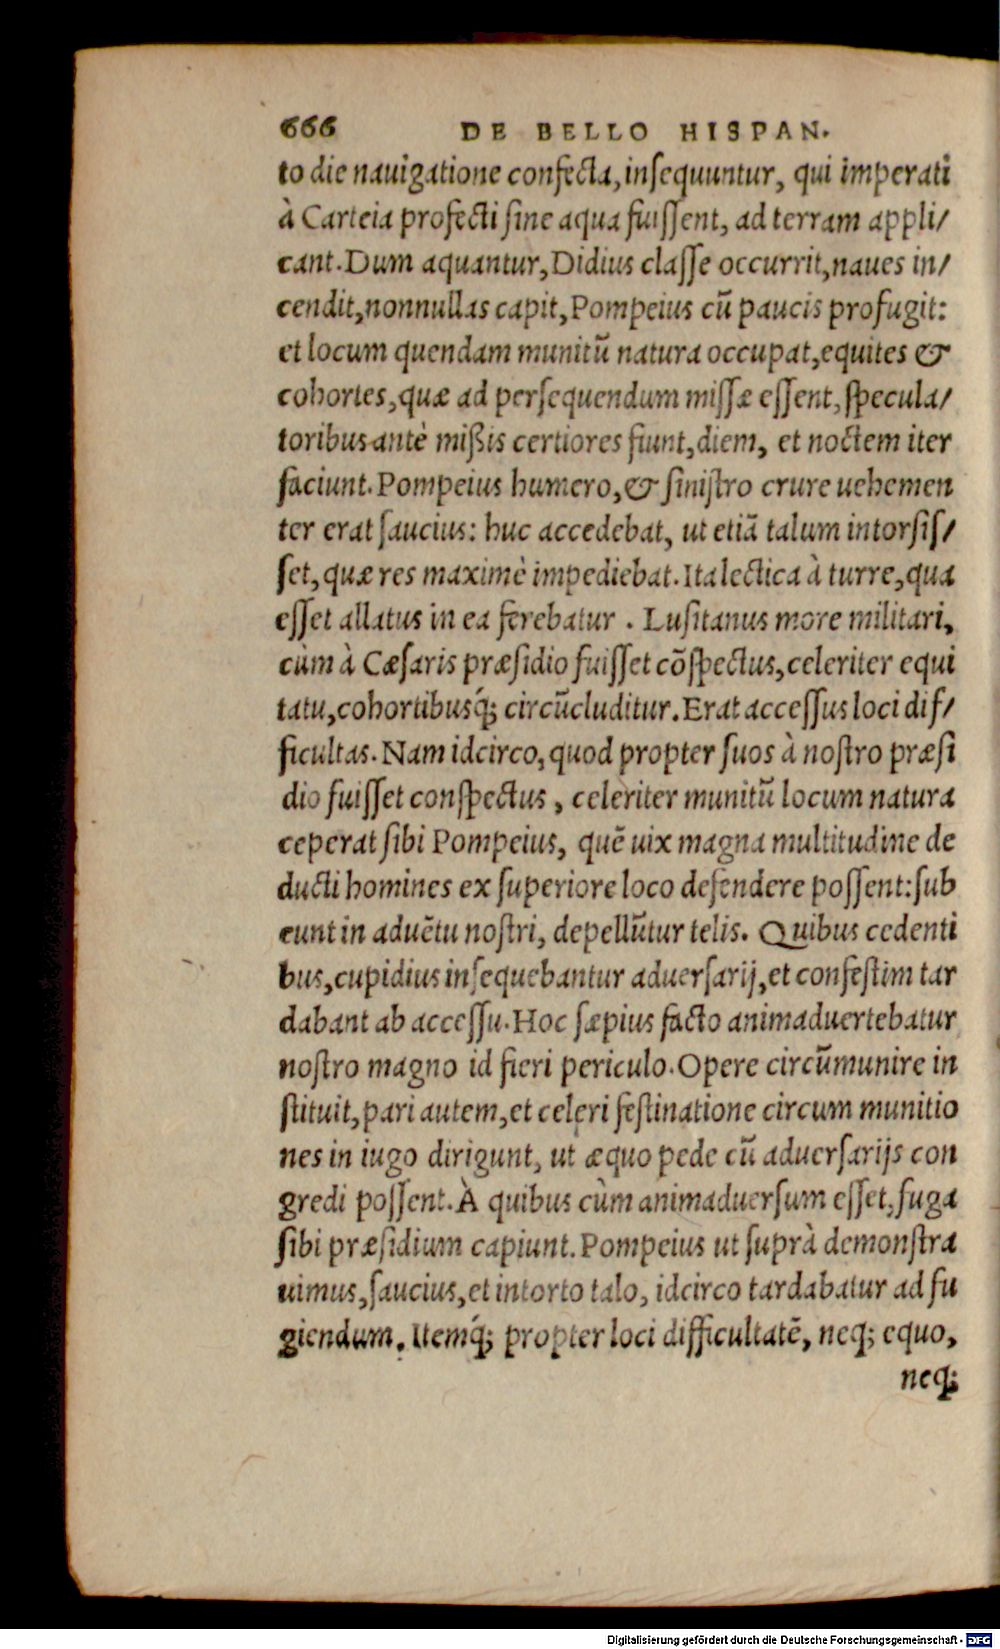 666 DE BELLO HISPAN.
to die nauigatione confecta, insequuntur, qui imperati
à Carteia profecti sine aqua fuissent, ad terram appli/
cant. Dum aquantur, Didius classe occurrit, naues in/
cendit, nonnullas capit, Pompeius cū paucis profugit:
et locum quendam munitū natura occupat, equites &
cohortes, quæ ad persequendum missæ essent, specula/
toribus antè mißis certiores fiunt, diem, et noctem iter
faciunt. Pompeius humero, & sinistro crure uehemen
ter erat saucius: huc accedebat, ut etiā talum intorsis/
set, quæ res maximè impediebat. Ita lectica à turre, qua
esset allatus in ea ferebatur. Lusitanus more militari,
cùm à Cæsaris præsidio fuisset cōspectus, celeriter equi
tatu, cohortibusq́; circūcluditur. Erat accessus loci dif/
ficultas. Nam idcirco, quod propter suos à nostro præsi
dio fuisset conspectus, celeriter munitū locum natura
ceperat sibi Pompeius, quē uix magna multitudine de
ducti homines ex superiore loco defendere possent: sub
eunt in aduētu nostri, depellūtur telis. Quibus cedenti
bus, cupidius insequebantur aduersarij, et confestim tar
dabant ab accessu. Hoc sæpius facto animaduertebatur
nostro magno id fieri periculo. Opere circūmunire in
stituit, pari autem, et celeri festinatione circum munitio
nes in iugo dirigunt, ut æquo pede cū aduersarijs con
gredi possent. À quibus cùm animaduersum esset, fuga
sibi præsidium capiunt. Pompeius ut suprà demonstra
uimus, saucius, et intorto talo, idcirco tardabatur ad fu
giendum. Itemq́; propter loci difficultatē, neq; equo,
neq;
Digitalisierung gefördert durch die Deutsche Forschungsgemeinschaft - DFG